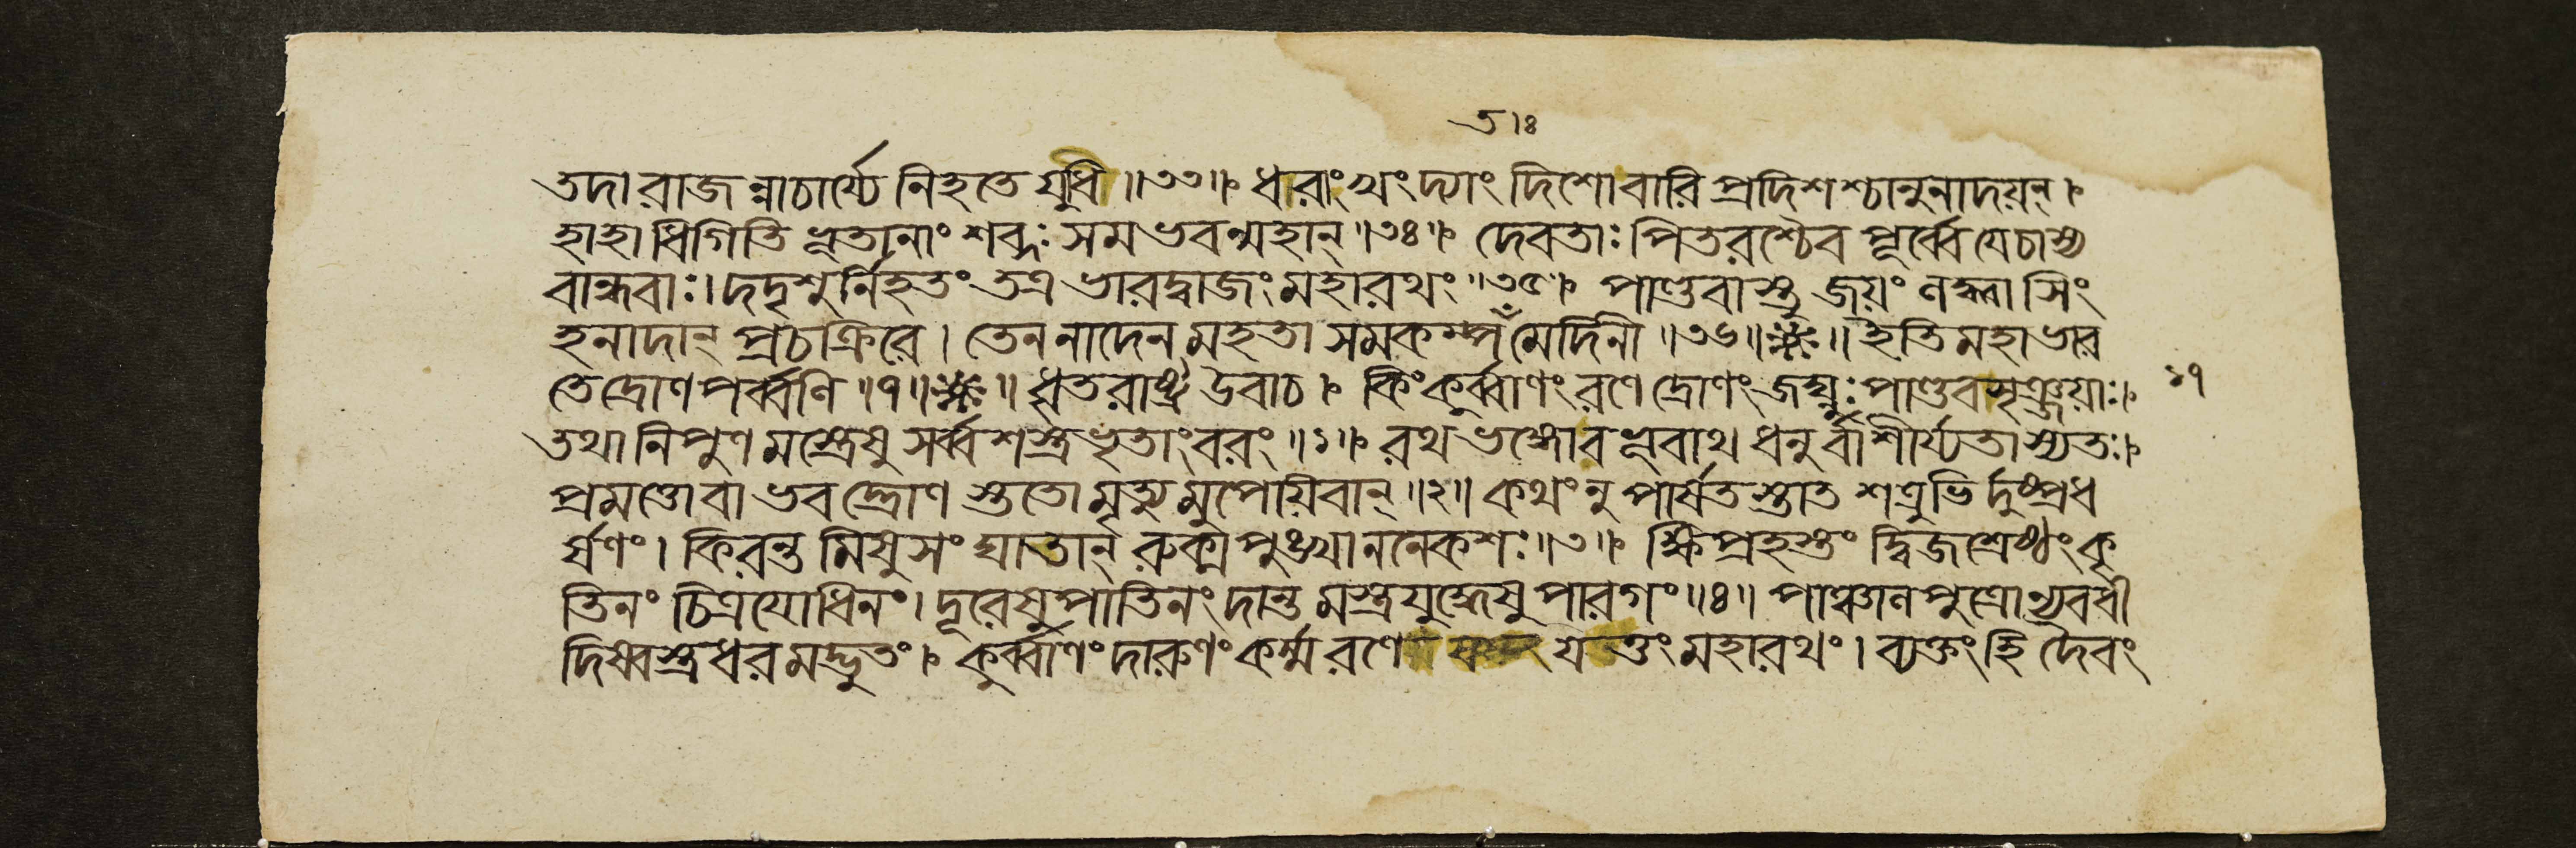 ৩।ঃ
তদা রাজন্নাচার্য্যে নিহতে যুধি ॥৩৩॥ ধরাং খং দ্যাং দিশো বারি প্রদিশশ্চানুনাদয়ন্ ।
হাহা ধিগিতি ভূতানাং শব্দঃ সমভবন্মহান্ ॥৩৪॥ দেবতাঃ পিতরশ্চৈব পূর্ব্বে যেচাস্য
বান্ধবাঃ। দদৃশুর্নিহতং তত্র ভারদ্বাজং মহারথং ॥৩৫॥ পাণ্ডবাস্তু জয়ং লব্ধ্বা সিং
হনাদান্ প্রচক্রিরে । তেন নাদেন মহতা সমকম্পঁ মেদিনী ॥৩৬॥ ॥ ইতি মহাভার
তে দ্রোণপর্ব্বণি ॥৭॥ ॥ ধৃতরাষ্ট্র উবাচ । কিং কুর্ব্বাণং রণে দ্রোণং জঘ্নুঃ পাণ্ডবসৃঞ্জয়াঃ। ১৭
তথা নিপুণমস্ত্রেষু সর্ব্বশস্ত্রভৃতাং বরং ॥১॥ রথভঙ্গো বভূবাথ ধনুর্বাশীর্য্যতাস্যতঃ।
প্রমত্তো বাভবদ্দ্রোণ স্ততো মৃত্যুমুপেয়িবান্ ॥২॥ কথং নু পার্ষতস্তাত শত্রুভির্দুষ্প্রধ
র্ষণং । কিরন্তমিষুসংঘাতান্ রুক্মপুঙ্খাননেকশঃ ॥৩॥ ক্ষিপ্রহস্তং দ্বিজশ্রেষ্ঠং কৃ
তিনং চিত্রযোধিনং। দূরেষুপাতিনং দান্তমস্ত্রযুদ্ধেষু পারগং ॥৪॥ পাঞ্চালপুত্রো ন্যবধী
দ্দিব্যাস্ত্রধরমদ্ভুতং । কুর্ব্বাণং দারুণং কর্ম্ম রণে যত্তং মহারথং । ব্যক্তং হি দৈবং